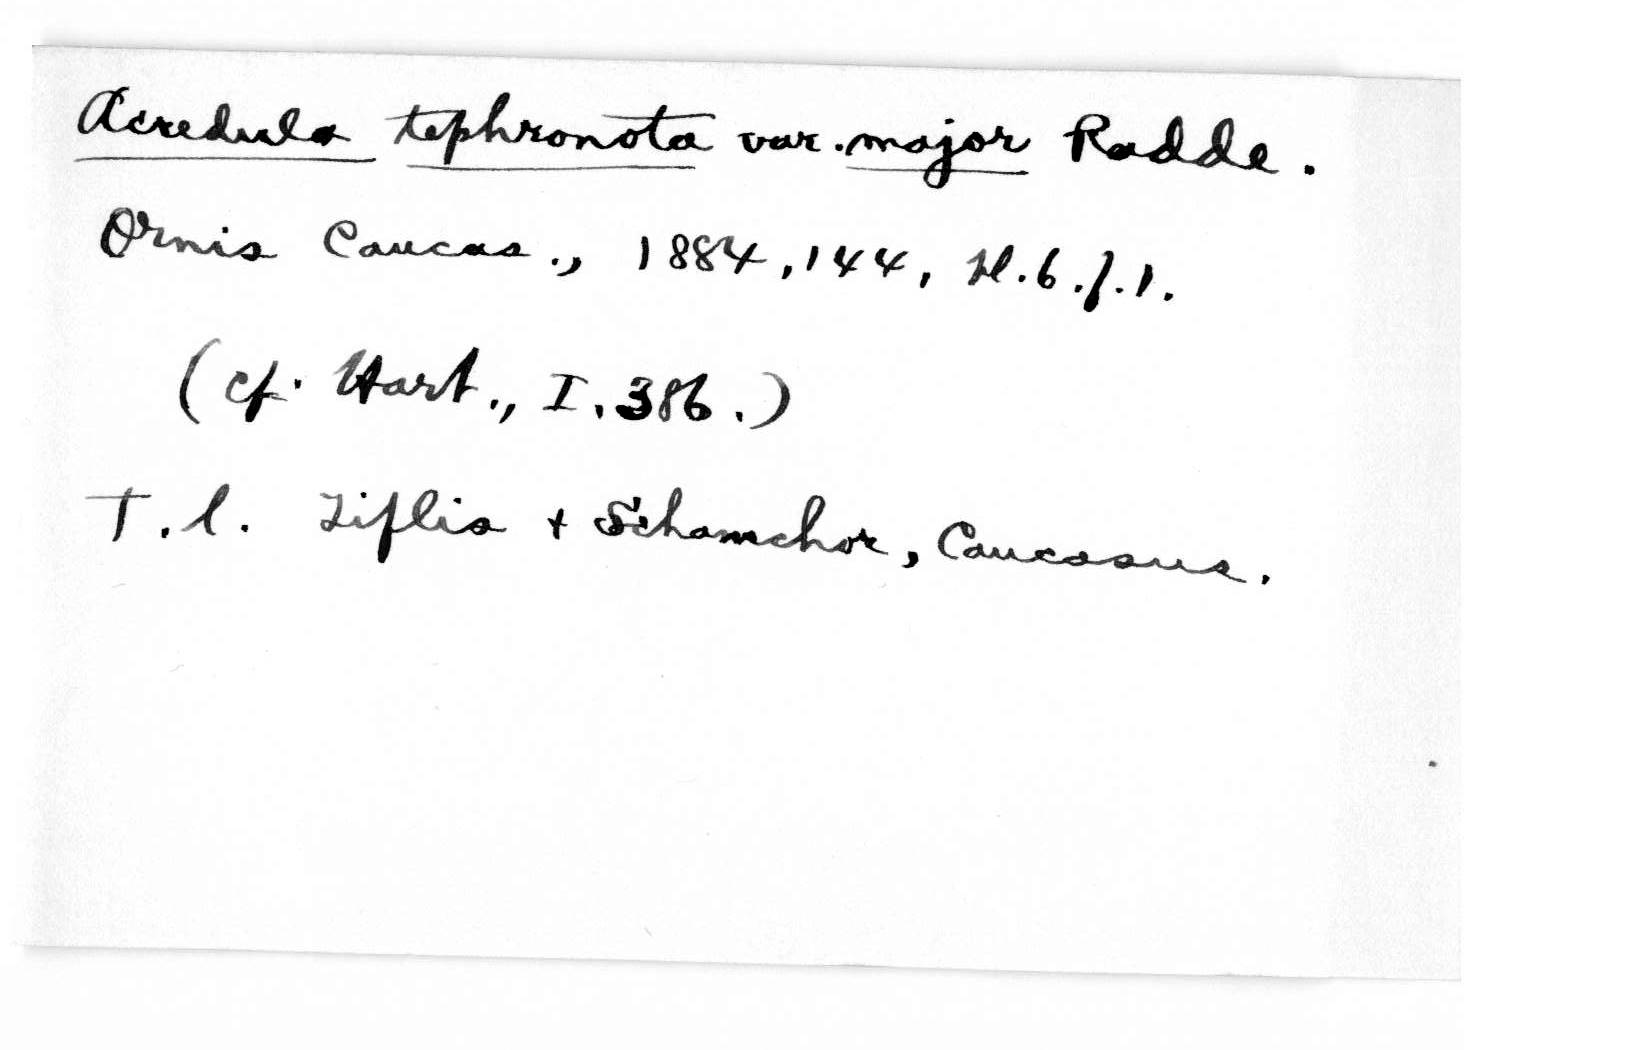 Acredula tephronota var. major Radde.
Ornis Caucas., 1884, 144, pl. 6. f. 1.
(cf. Hart., I. 386.)
T. l. Tiflis + Schamchor, Caucasus.